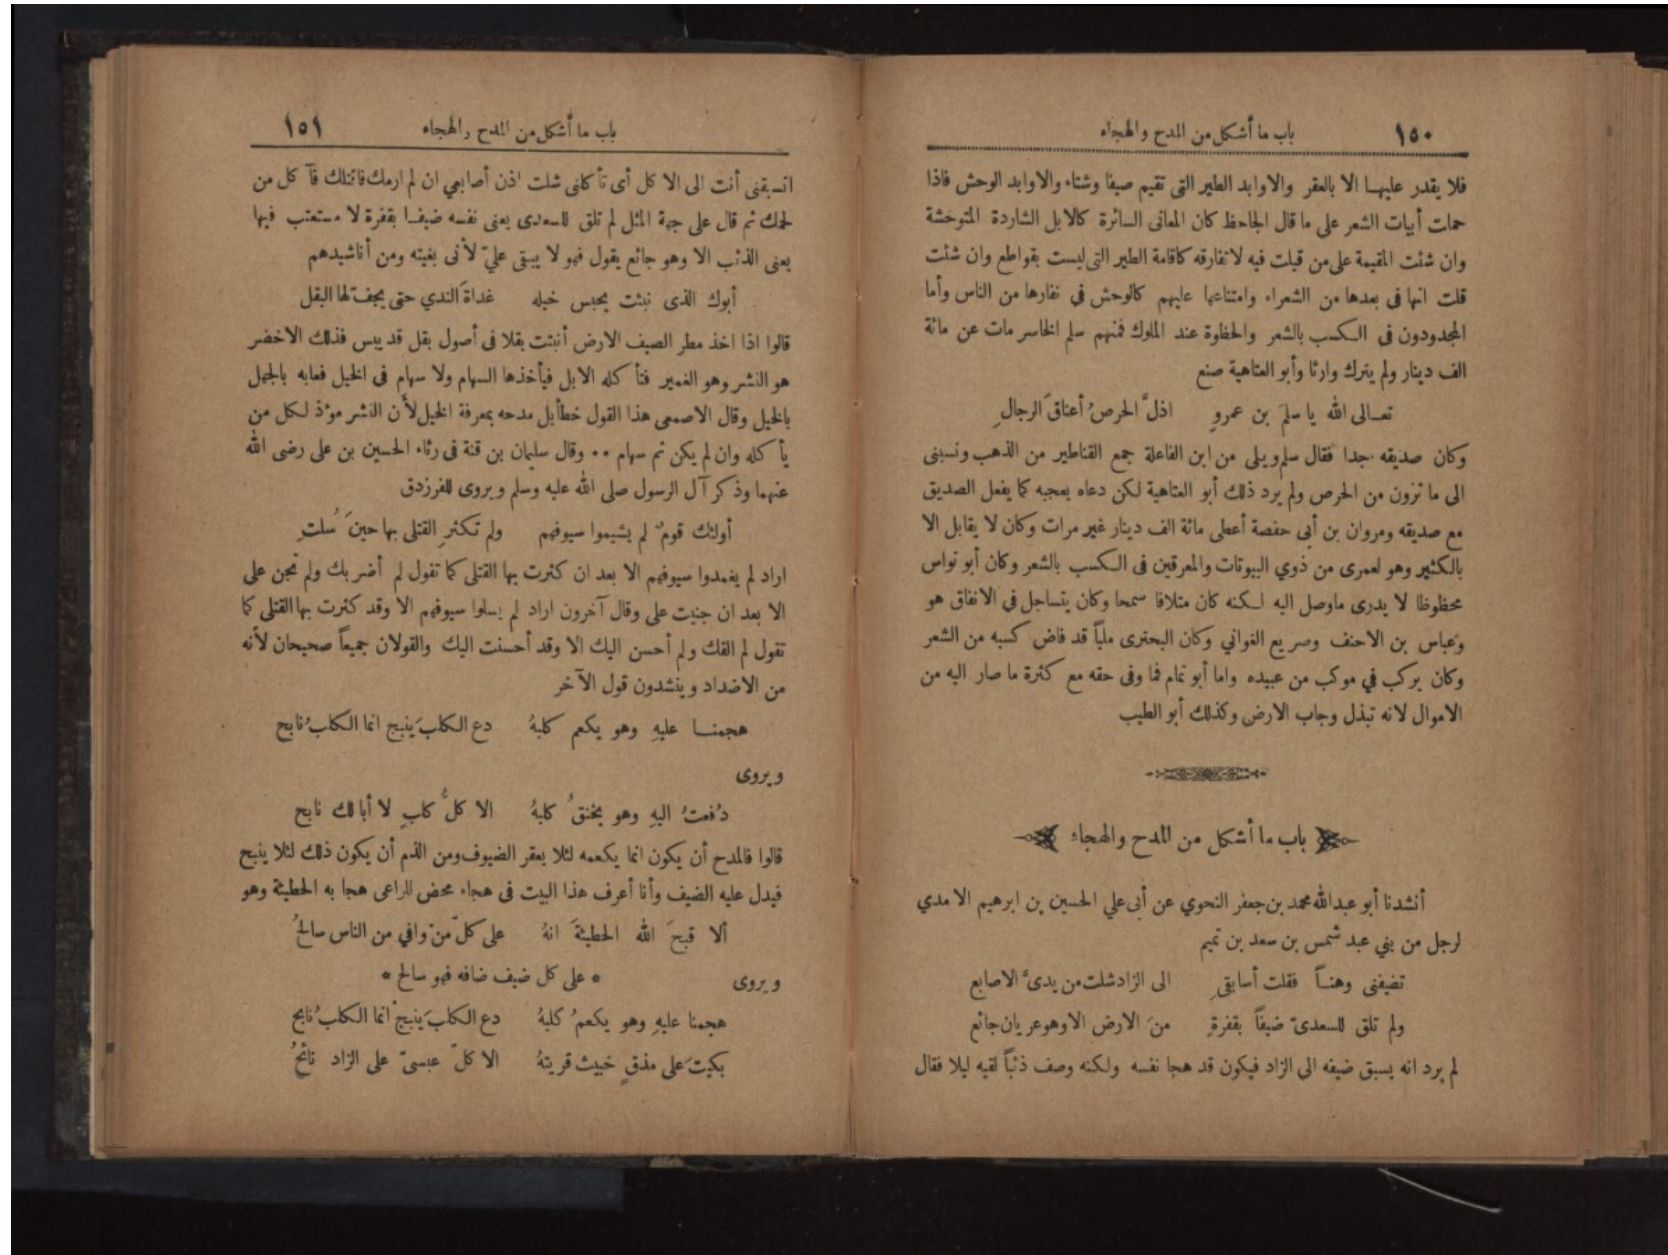 ١٥٠ باب ما أشكل من المدح والهجاء
فلا يقدر عليهـا الا بالعقر والاوابد الطير التى تقيم صيفا وشتاء والاوابد الوحش فاذا
حملت أبيات الشعر على ما قال الجاحظ كان المعانى السائرة كالابل الشاردة المتوحشة
وان شئت المقيمة على من قيلت فيه لا تفارقه كاقامة الطير التى ليست بقواطع وان شئت
قلت انها فى بعدها من الشعراء وامتناعها عليهم كالوحش في نفارها من الناس وأما
المجدودون فى الـكسب بالشعر والحظوة عند الملوك فمنهم سلم الخاسر مات عن مائة
الف دينار ولم يترك وارثا وأبو العتاهية صنع
تعـالى الله يا سلمَ بن عمروٍ اذلَّ الحرصُ أعناقَ الرجالِ
وكان صديقه جدا فقال سلم ويلى من ابن الفاعلة جمع القناطير من الذهب ونسبنى
الى ما ترون من الحرص ولم يرد ذلك أبو العتاهية لكن دعاه يعجبه كما يفعل الصديق
مع صديقه ومروان بن أبى حفصة أعطى مائة الف دينار غير مرات وكان لا يقابل الا
بالكثير وهو لعمرى من ذوي البيوتات والمعرقين فى الـكسب بالشعر وكان أبو نواس
محظوظا لا يدرى ماوصل اليه لـكنه كان متلافا سمحا وكان يتساجل في الانفاق هو
وعباس بن الاحنف وصريع الغواني وكان البحترى مليّاً قد فاض كسبه من الشعر
وكان يركب في موكب من عبيده واما أبو تمام فما وفى حقه مع كثرة ما صار اليه من
الاموال لانه تبذل وجاب الارض وكذلك أبو الطيب
باب ما أشكل من المدح والهجاء
أنشدنا أبو عبدالله محمد بن جعفر النحوي عن أبى علي الحسين بن ابرهيم الامدي
لرجل من بني عبد شمس بن سعد بن تميم
تضيفنى وهنـاً فقلت أسابقىِ الى الزاد شلت من يدىَّ الاصابع
ولم تلق للسعدىّ ضيفاً بقفرةٍ منَ الارض الا وهو عريان جائع
لم يرد انه يسبق ضيفه الى الزاد فيكون قد هجا نفسه ولكنه وصف ذئباً لقيه ليلا فقال
باب ما أشكل من المدح والهجاء ١٥١
اتسبقنى أنت الى الاكل أى تأكلنى شلت اذن أصابعي ان لم ارمك فاقتلك فآكل من
لحمك ثم قال على جهة المثل لم تلق للسعدى يعنى نفسه ضيفـا بقفرة لا مستعتب فيها
يعنى الذئب الا وهو جائع يقول فهو لا يبقى عليّ لأنى بغيته ومن أناشيدهم
أبوك الذى نبئت يحبس خيله غداةَ الندي حتى يجفّ لها البقل
قالوا اذا اخذ مطر الصيف الارض أنبتت بقلا فى أصول بقل قد يبس فذلك الاخضر
هو النشر وهو الغمير فتأكله الابل فيأخذها السهام ولا سهام فى الخيل فعابه بالجهل
بالخيل وقال الاصمعى هذا القول خطأ بل مدحه بمعرفة الخيل لأن النشر مؤذ لـكل من
يأكله وان لم يكن ثم سهام •• وقال سليمان بن قتة فى رثاء الحسين بن على رضى الله
عنهما وذكر آل الرسول صلى الله عليه وسلم ويروى للفرزدق
أولئك قومٌ لم يشيموا سيوفهم ولم تـكثرِ القتلى بها حينَ سُلتِ
اراد لم يغمدوا سيوفهم الا بعد ان كثرت بها القتلى كما تقول لم أضربك ولم تجن على
الا بعد ان جنيت على وقال آخرون اراد لم يسلوا سيوفهم الا وقد كثرت بها القتلى كما
تقول لم القك ولم أحسن اليك الا وقد أحسنت اليك والقولان جميعاً صحيحان لأنه
من الاضداد وينشدون قول الآخر
هجمنـا عليهِ وهو يكعم كلبهُ دع الـكلبَ ينبح انما الـكلبُ نابح
ويروى
دُفعتُ اليهِ وهو يخنقُ كلبهُ الا كلُّ كلبٍ لا أبا لك نابح
قالوا فالمدح أن يكون انما يكعمه لئلا يعقر الضيوف ومن الذم أن يكون ذلك لئلا ينبح
فيدل عليه الضيف وأنا أعرف هذا البيت فى هجاء محض للراعى هجا به الحطيئة وهو
ألا قبحَ الله الحطيئةَ انهُ على كلّ منْ وافي من الناس سالحُ
ويروى * على كل ضيف ضافه فهو سالح *
هجمنا عليهِ وهو يكعمُ كلبهُ دع الـكلبَ ينبحْ انما الـكلبُ نابح
بكيتَ على مذقٍ خبيث قريتهُ الا كلّ عبسىّ على الزاد نائحُ